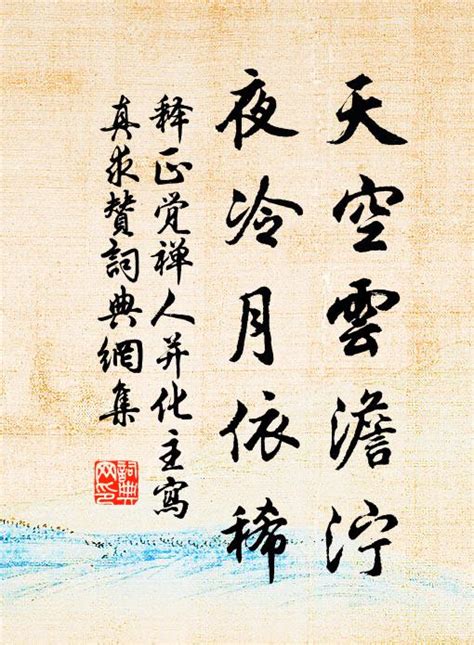 天空雲澹泞
夜冷月依稀
释正觉禅人并化主寫
真求赞詞典網集
詞典网印